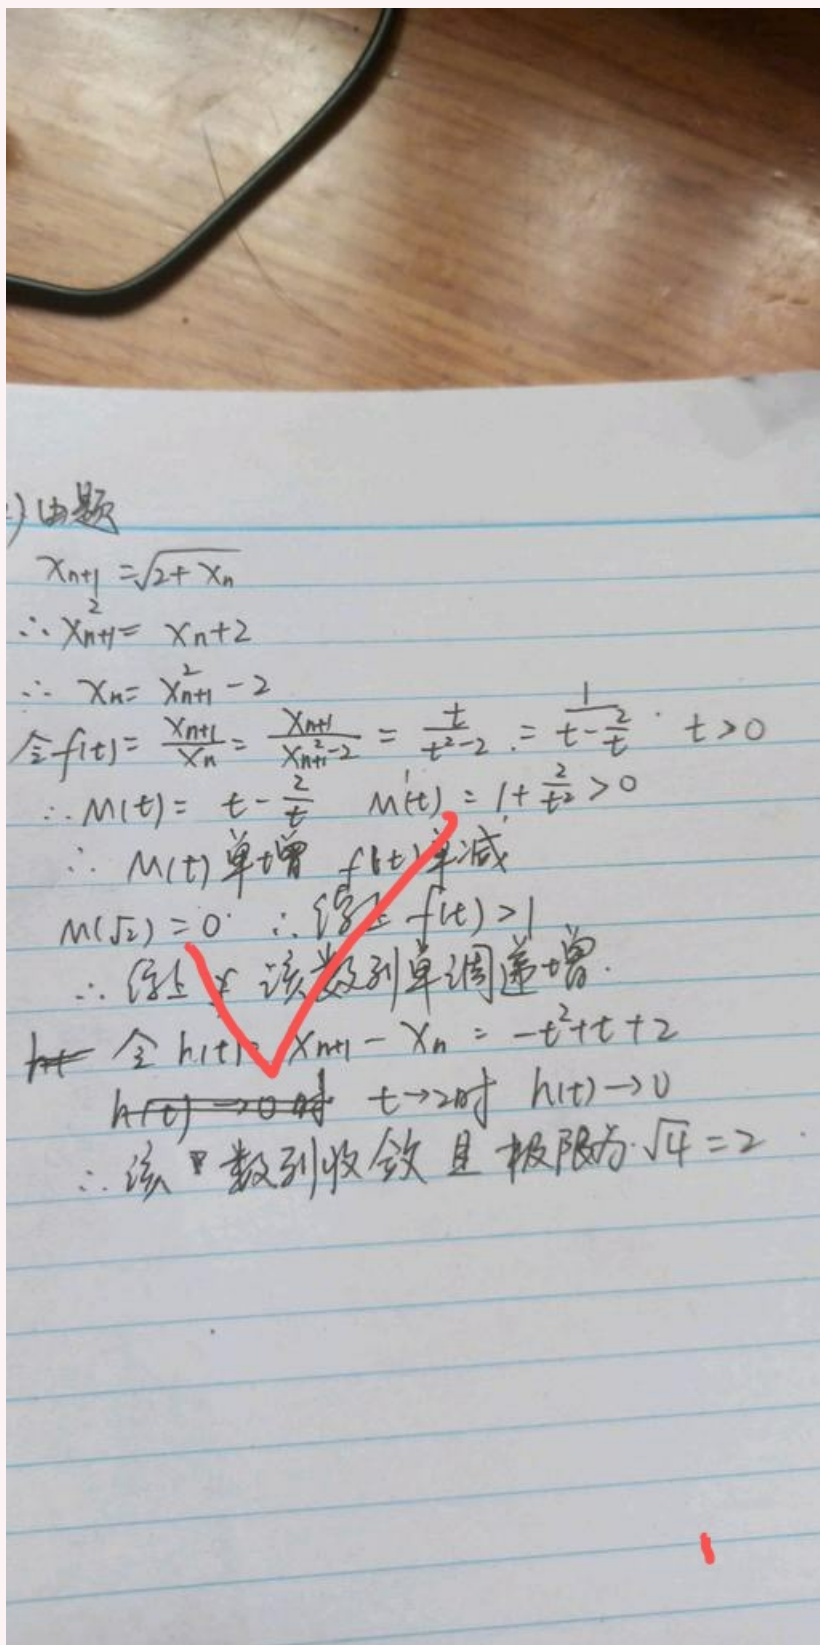 )由题
xₙ₊₁ = √(2+xₙ)
∴ xₙ₊₁² = xₙ+2
∴ xₙ = xₙ₊₁² - 2
令f(t) = xₙ₊₁/xₙ = xₙ₊₁/(xₙ₊₁²-2) = t/(t²-2) = 1/(t-2/t) t>0
∴ M(t) = t - 2/t M'(t) = 1 + 2/t² > 0
∴ M(t)单增 f(t)单减
M(√2) = 0 ∴ 综上 f(t) > 1
∴ 综上 该数列单调递增.
令 h(t) = xₙ₊₁ - xₙ = -t²+t+2
h(t)→0时 t→2时 h(t)→0
∴ 该数列收敛且极限为√4 = 2